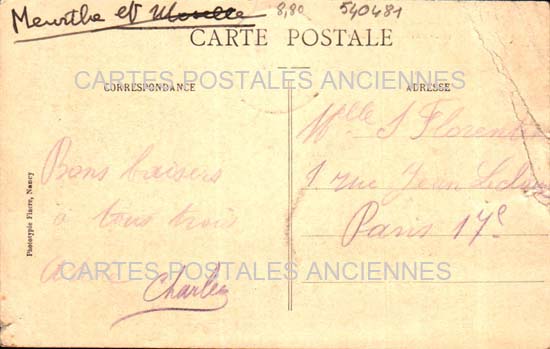 Meurthe et Moselle 8,80 540481
CARTE POSTALE
CARTES POSTALES ANCIENNES
CORRESPONDANCE
ADRESSE
Bons baisers
à tous trois
Charles
Mlle S Florentin
1 rue Jean Leclaire
Paris 17e
CARTES POSTALES ANCIENNES
Phototypie Fiacre, Nancy